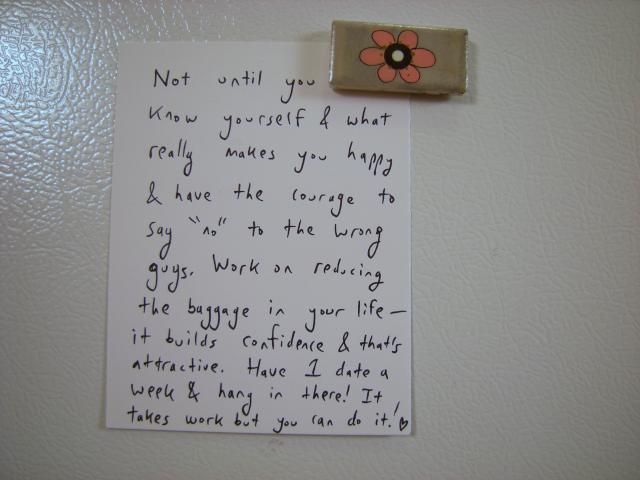 Not until you
Know yourself & what
really makes you happy
& have the courage to
say "no" to the wrong
guys. Work on reducing
the baggage in your life—
it builds confidence & that's
attractive. Have 1 date a
week & hang in there! It
takes work but you can do it!♡